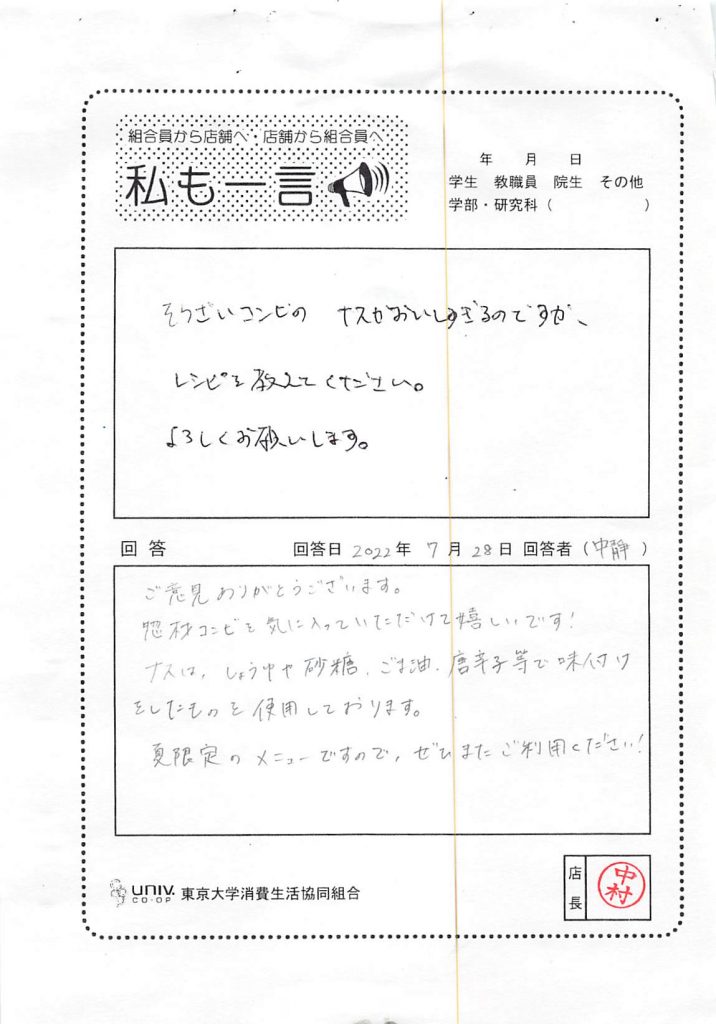 組合員から店舗へ・店舗から組合員へ
私も一言
年 月 日
学生 教職員 院生 その他
学部・研究科（ ）
そうざいコンビの ナスがおいしすぎるのですが、
レシピを教えてください。
よろしくお願いします。
回答 回答日 2022年 7月 28日 回答者（中靜）
ご意見ありがとうございます。
惣材コンビを気に入っていただけて嬉しいです!
ナスは、しょうゆや砂糖、ごま油、唐辛子等で味付け
をしたものを使用しております。
夏限定のメニューですので、ぜひまたご利用ください!
UNIV. CO-OP 東京大学消費生活協同組合
店長
中村